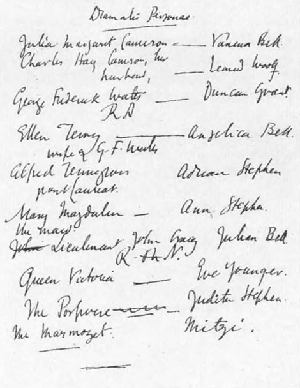 Dramatis Personae
Julia Margaret Cameron — Vanessa Bell
Charles Hay Cameron, her
husband, — Leonard Woolf
George Frederick Watts — Duncan Grant
R A
Ellen Terry — Angelica Bell
wife of G. F. Watts
Alfred Tennyson Adrian Stephen
poet laureat.
Mary Magdalen — Ann Stephen
the maid
John Lieutenant John Craig Julian Bell
R. N.
Queen Victoria — Eve Younger.
The Porpoise — Judith Stephen
The Marmozet. Mitzi.